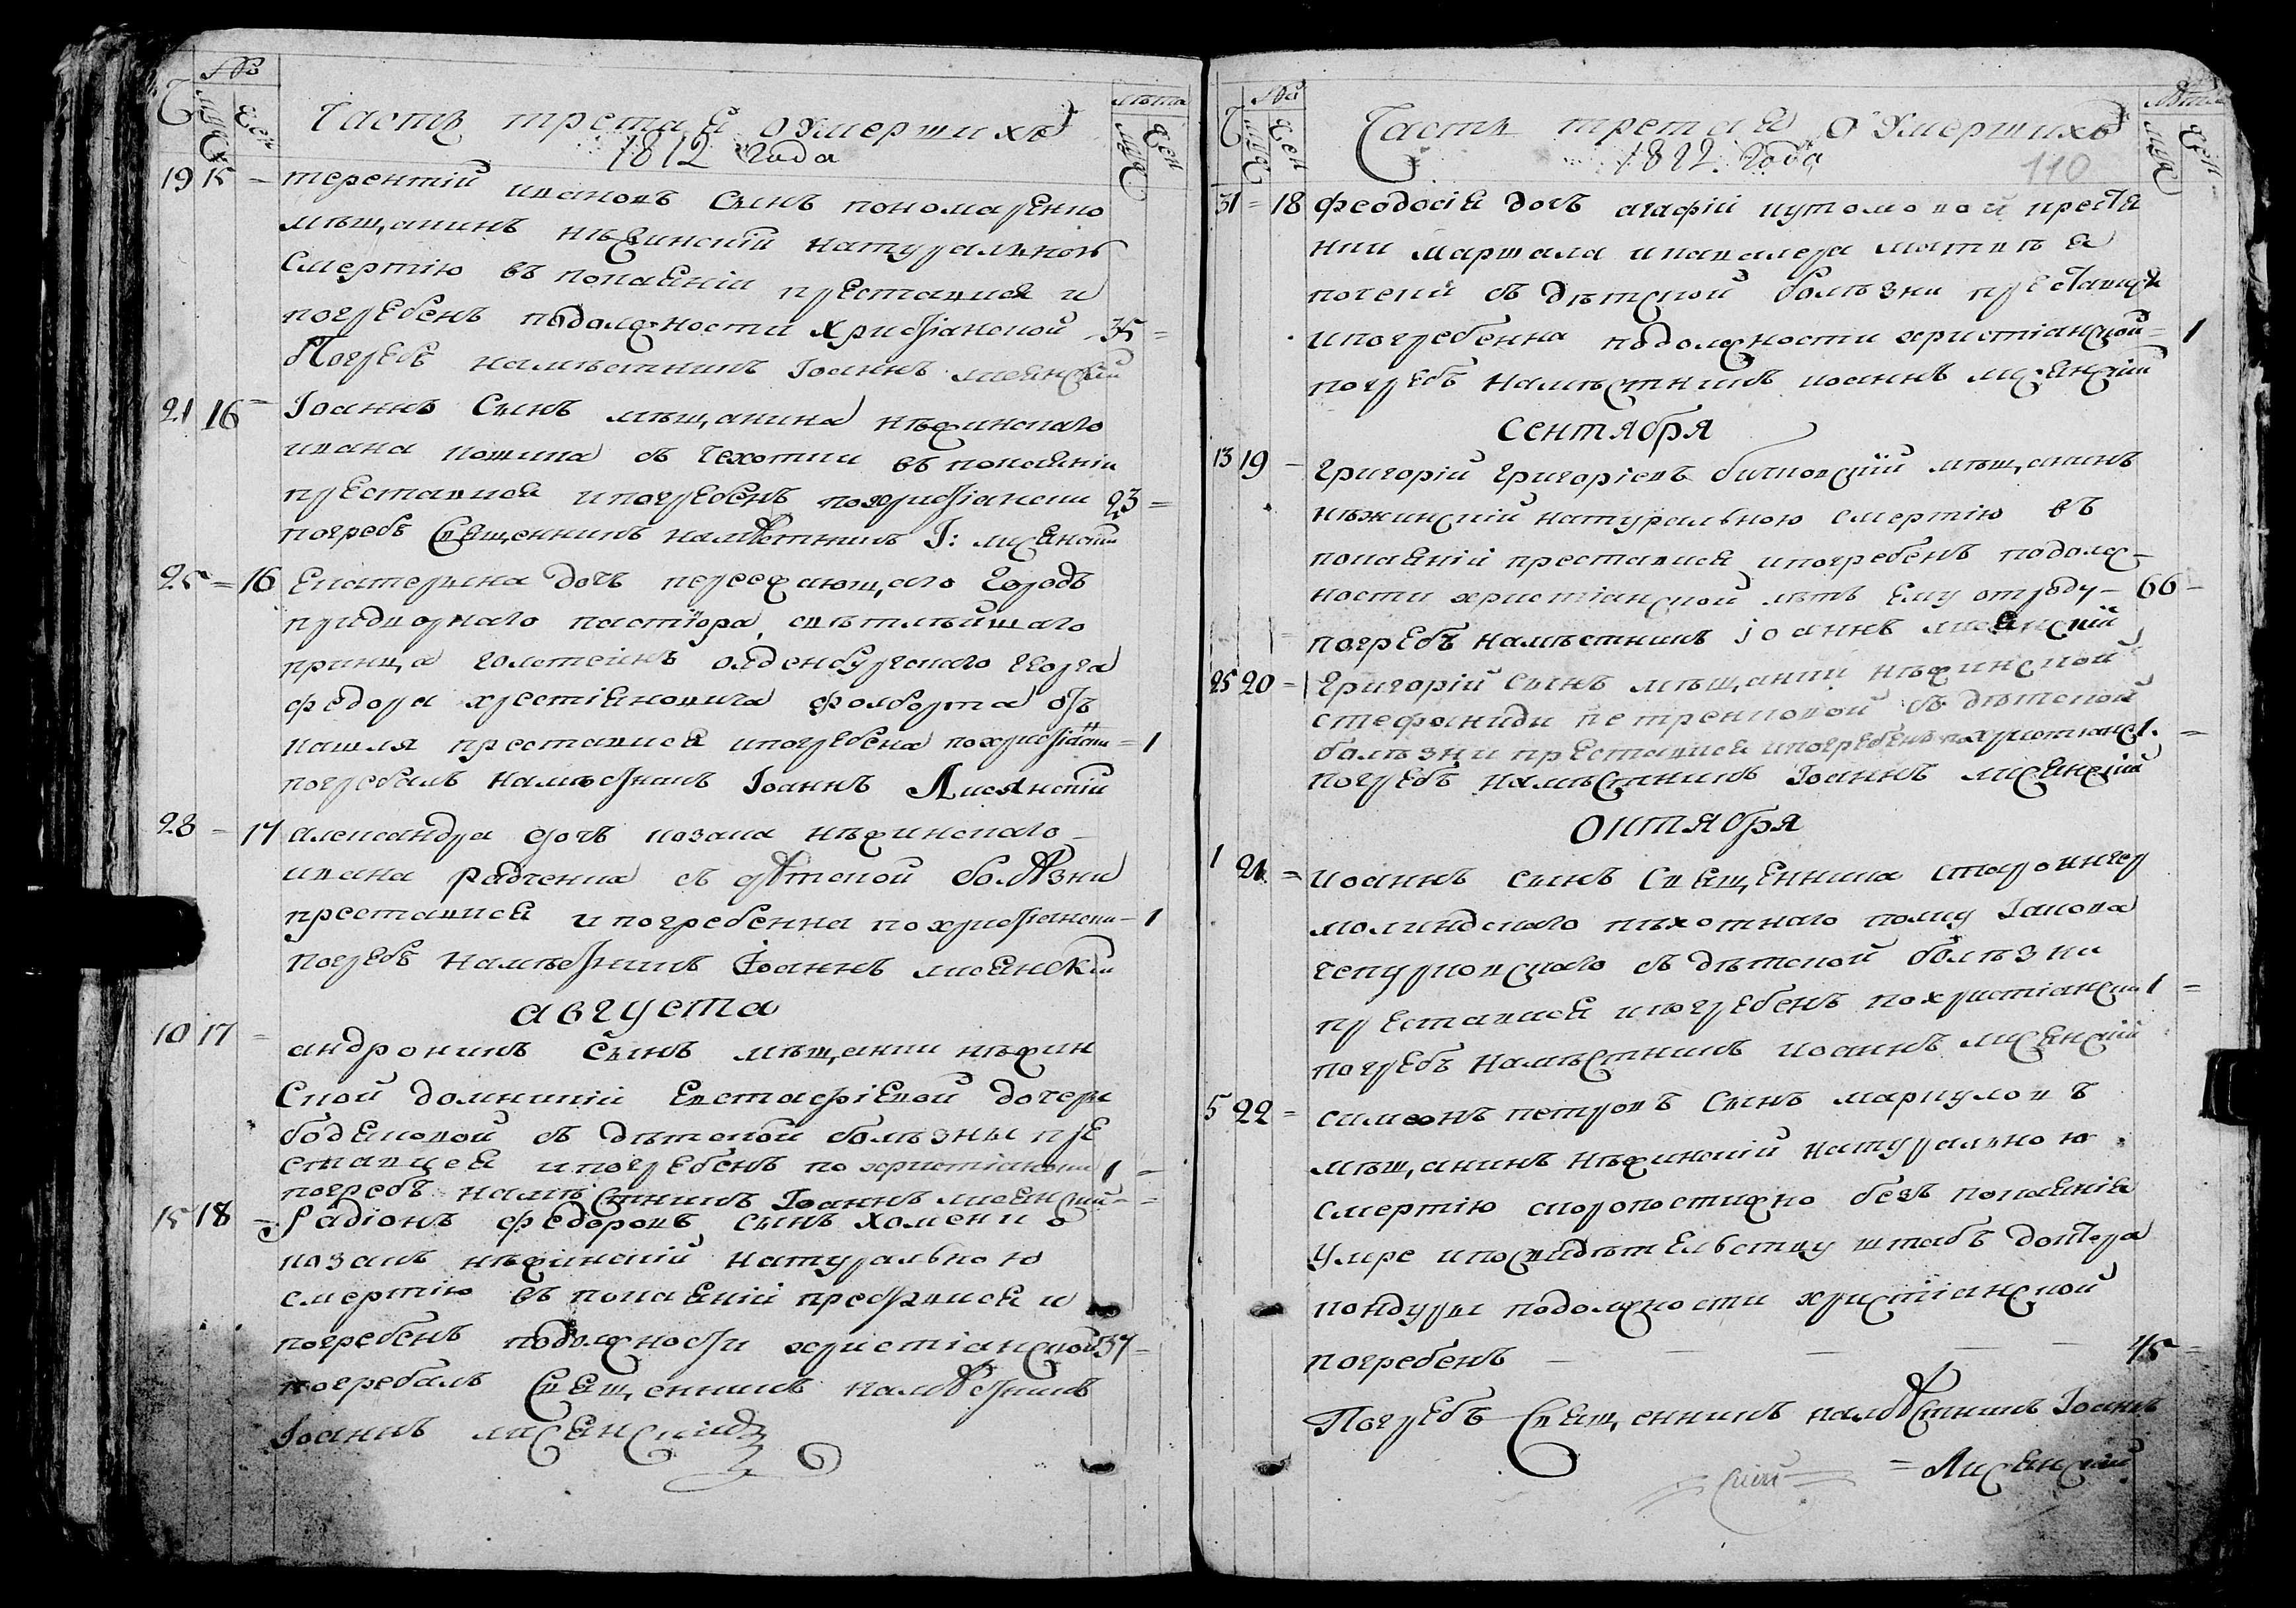 Часть третая о умершихъ
1812 Года
лѣта
19 15 терентій ивановъ Сынъ пономаренко
мѣщанинъ нѣжинскій натуральной
Смертію въ покаяніи преставися и
погребенъ подолжности христіанской 35
Погребъ намѣстникъ Іоаннъ лисянскій
21 16 Іоаннъ Сынъ мѣщанина нѣжинскаго
ивана съ чехотки въ покаяніи
преставися и погребенъ похристіански 23
погребъ Священникъ намѣстникъ І: лисянскій
25 16 Екатерина дочъ переежающаго Чрезъ
придворнаго пастора свѣтлѣйшаго
принца голстейнъ олденбургскаго георга
федора хрестіяновича фолборта отъ
кашля преставися и погребена похристіански 1
погребалъ намѣстникъ Іоаннъ Лисянскій
28 17 александра дочъ козака нѣжинскаго
ивана Радченка съ дѣтской болѣзни
преставися и погребенна похристіански 1
погребъ намѣстникъ Іоаннъ лисянскій
августа
10 17 андроникъ Сынъ мѣщанки нѣжин
Ской домникіи Евстафіевой дочери
съ дѣтской болѣзны пре
ставися и погребенъ по христіански 1
погребъ намѣстникъ Іоаннъ лисянскій
15 18 Радіонъ федоровъ сынъ хоменко
козакъ нѣжинскій натуральною
смертію въ покаяніи преставися и
погребенъ подолжности христіанской 37
погребалъ Священникъ намѣстникъ
Іоаннъ лисянскій
Часть третая о Умершихъ
1812 Года
110
лѣта
31 18 феодосія дочъ агафіи престя
нки маршала и кавалера матвѣя
съ дѣтской болѣзни преставися
и погребенна подолжности христіанской 1
погребъ намѣстникъ иоаннъ лисянскій
сентября
13 19 григорій григоріевъ мѣщанинъ
нѣжинскій натуральною смертію въ
покаяніи преставися и погребенъ подолж-
ности христіанской лѣтъ Ему отроду 66
погребъ намѣстникъ іоаннъ лисянскій
25 20 григорій сынъ мѣщанки нѣжинской
стефаниди петренковой съ дѣтской
болѣзни преставися и погребенъ по христіанс 1
погребъ намѣстникъ Іоаннъ лисянскій
октября
1 21 иоаннъ сынъ Священника староингер
молиндскаго пѣхотнаго полку Іакова
чепурковскаго съ дѣтской болѣзни
преставися и погребенъ похристіански 1
погребъ намѣстникъ иоаннъ лисянскій
5 22 симеонъ петровъ Сынъ маркуловъ
мѣщанинъ нѣжинскій натуральною
смертію скоропостижно безъ покаянія
умре и посвидѣтельству штабъ доктора
кондуры подолжности христіанской
погребенъ 45
Погребъ Священникъ намѣстникъ Іоаннъ
Лисянскій